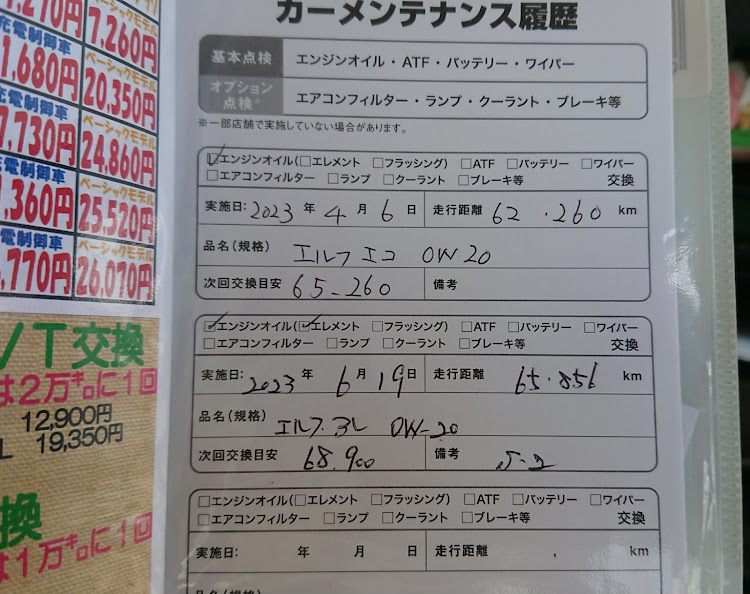 7,270円
ベーシックモデル
7,260円
充電制御車
1,680円
ベーシックモデル
20,350円
充電制御車
7,730円
ベーシックモデル
24,860円
充電制御車
1,360円
ベーシックモデル
25,520円
電制御車
5,770円
ベーシックモデル
26,070円
/T交換
は2万キロに1回
12,900円
L 19,350円
換
は1万キロに1回
カーメンテナンス履歴
基本点検 エンジンオイル・ATF・バッテリー・ワイパー
オプション点検※ エアコンフィルター・ランプ・クーラント・ブレーキ等
※一部店舗で実施していない場合があります。
☑エンジンオイル(□エレメント □フラッシング) □ATF □バッテリー □ワイパー
□エアコンフィルター □ランプ □クーラント □ブレーキ等 交換
実施日:2023年4月6日 走行距離 62.260km
品名(規格) エルフエコ 0W20
次回交換目安 65-260 備考
☑エンジンオイル(☑エレメント □フラッシング) □ATF □バッテリー □ワイパー
□エアコンフィルター □ランプ □クーラント □ブレーキ等 交換
実施日:2023年6月19日 走行距離 65.856km
品名(規格) エルフ 0W-20
次回交換目安 68,900 備考
□エンジンオイル(□エレメント □フラッシング) □ATF □バッテリー □ワイパー
□エアコンフィルター □ランプ □クーラント □ブレーキ等 交換
実施日: 年 月 日 走行距離 . km